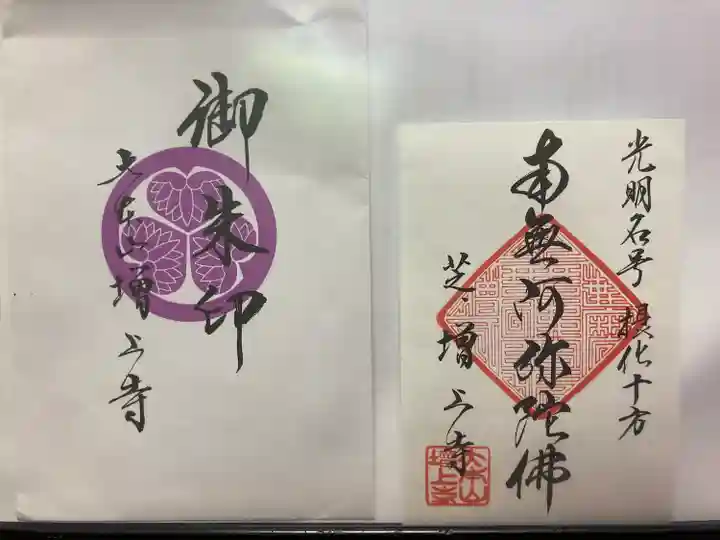 御朱印
大本山増上寺
光明名号 摂化十方
南無阿弥陀佛
芝 増上寺